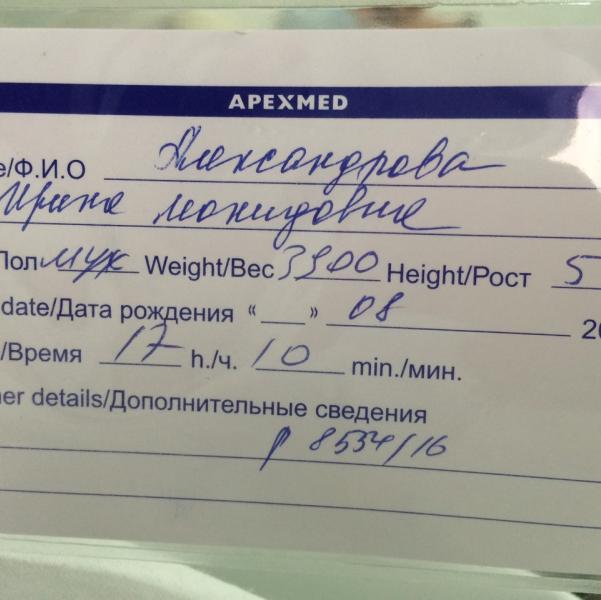 APEXMED
e/Ф.И.О Александрова
Ирина Леонидовна
Пол муж Weight/Вес 3900 Height/Рост 5
date/Дата рождения “___” 08 20
/Время 17 h./ч. 10 min./мин.
her details/Дополнительные сведения
р 8534/16